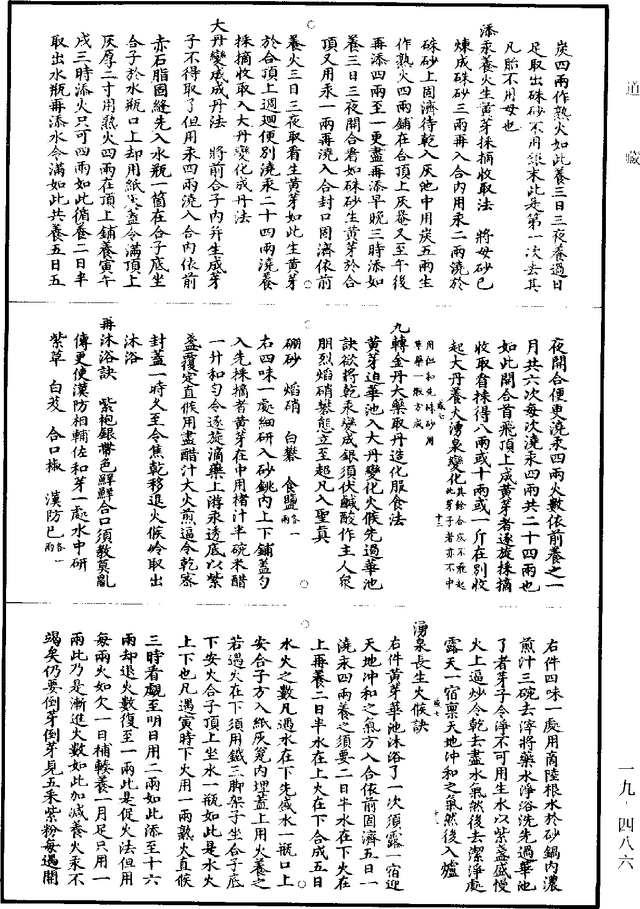 道藏
炭四兩作熟火如此養三日三夜養過日
足取出硃砂不用銀末此是第一次去其
凡胎不用母也
添汞養火生黃芽採摘收取法　將母砂已
煉成硃砂三兩再入合內用汞二兩澆於
硃砂上固濟待乾入灰池中用炭五兩生
作熟火四兩鋪在合頂上灰罨又至午後
再添四兩至一更盡再添早晚三時添如
養三日三夜開合看如硃砂生黃芽於合
頂又用汞一兩再澆入合封口固濟依前
養火三日三夜取看生黃芽如此生黃芽
於合頂上週迴便別澆汞二十四兩澆養
採摘收取入大丹變化成丹法
大丹變成成丹法　將前合子內并生成芽
子不得取了但用汞四兩澆入合內依前
赤石脂固縫先入水瓶一箇在合子底坐
合子於水瓶口上却用紙灰蓋令滿頂上
灰厚二寸用熟火四兩在頂上鋪養寅午
戌三時添火只可四兩如此備養二日半
取出水瓶再添水令滿如此共養五日五
夜開合便更澆汞四兩火數依前養之一
月共六次每次澆汞四兩共二十四兩也
如此開合首飛頂上成黃芽者逐旋採摘
收取看採得八兩或十兩或一斤在別收
起大丹養火湧泉變化其餘各灰不乘起此芽子者亦不中
用但和先硃砂用單藥一般方成
九轉金丹大藥取丹造化服食法
黃芽迫華池入大丹變化火候先過華池
訣欲將乾汞變成銀須伏鹹酸作主人泉
朋烈焰硝礬態立至超凡入聖真
硇砂　焰硝　白礬　食鹽各一兩
右四味一處細研入砂銚內上下鋪蓋勻
入先採摘者黃芽在中用楮汁半碗米醋
一升和勻令逐旋滴藥上游汞透底以紫
盞覆定直候用盡醋汁大火煎逼令乾密
封蓋一時久至令焦乾移退火候冷取出
沐浴
再沐浴訣　紫袍銀帶色鮮鮮合口須教莫亂
傳更使漢防相輔佐和芽一處水中研
紫草　白芨　合口椒　漢防巳各一兩
右件四味一處用商陸根水於砂鍋內濃
煎汁三碗去滓將藥水淨浴洗先過華池
了者芽子令淨不可用生水以紫盞盛慢
火上逼炒令乾去盡水氣然後去潔淨處
露天一宿禀天地沖和之氣然後入爐
湧泉長生火候訣
右件黃芽華池沐浴了一次須露一宿迎
天地沖和之氣方入合依前固濟五日一
澆汞四兩養之須要二日半水在下火在
上再養二日半水在上火在下合成五日
水火之數凡遇水在下先盛水一瓶口上
安合子方入紙灰籠內埋蓋上用火養之
若遇火在下須用鐵三脚架子坐合子底
下安火合子頂上坐水一瓶如此是水火
上下也凡遇寅時下火用一兩熟火直候
三時看覷至明日用二兩如此添至十六
兩却退火數復至一兩此是促火法但用
每兩火如欠一日補輳養一月足只用一
兩此乃是漸進火數如此加減養火汞不
竭矣仍要倒芽倒芽見五釆紫粉每遇開
一九-四八六